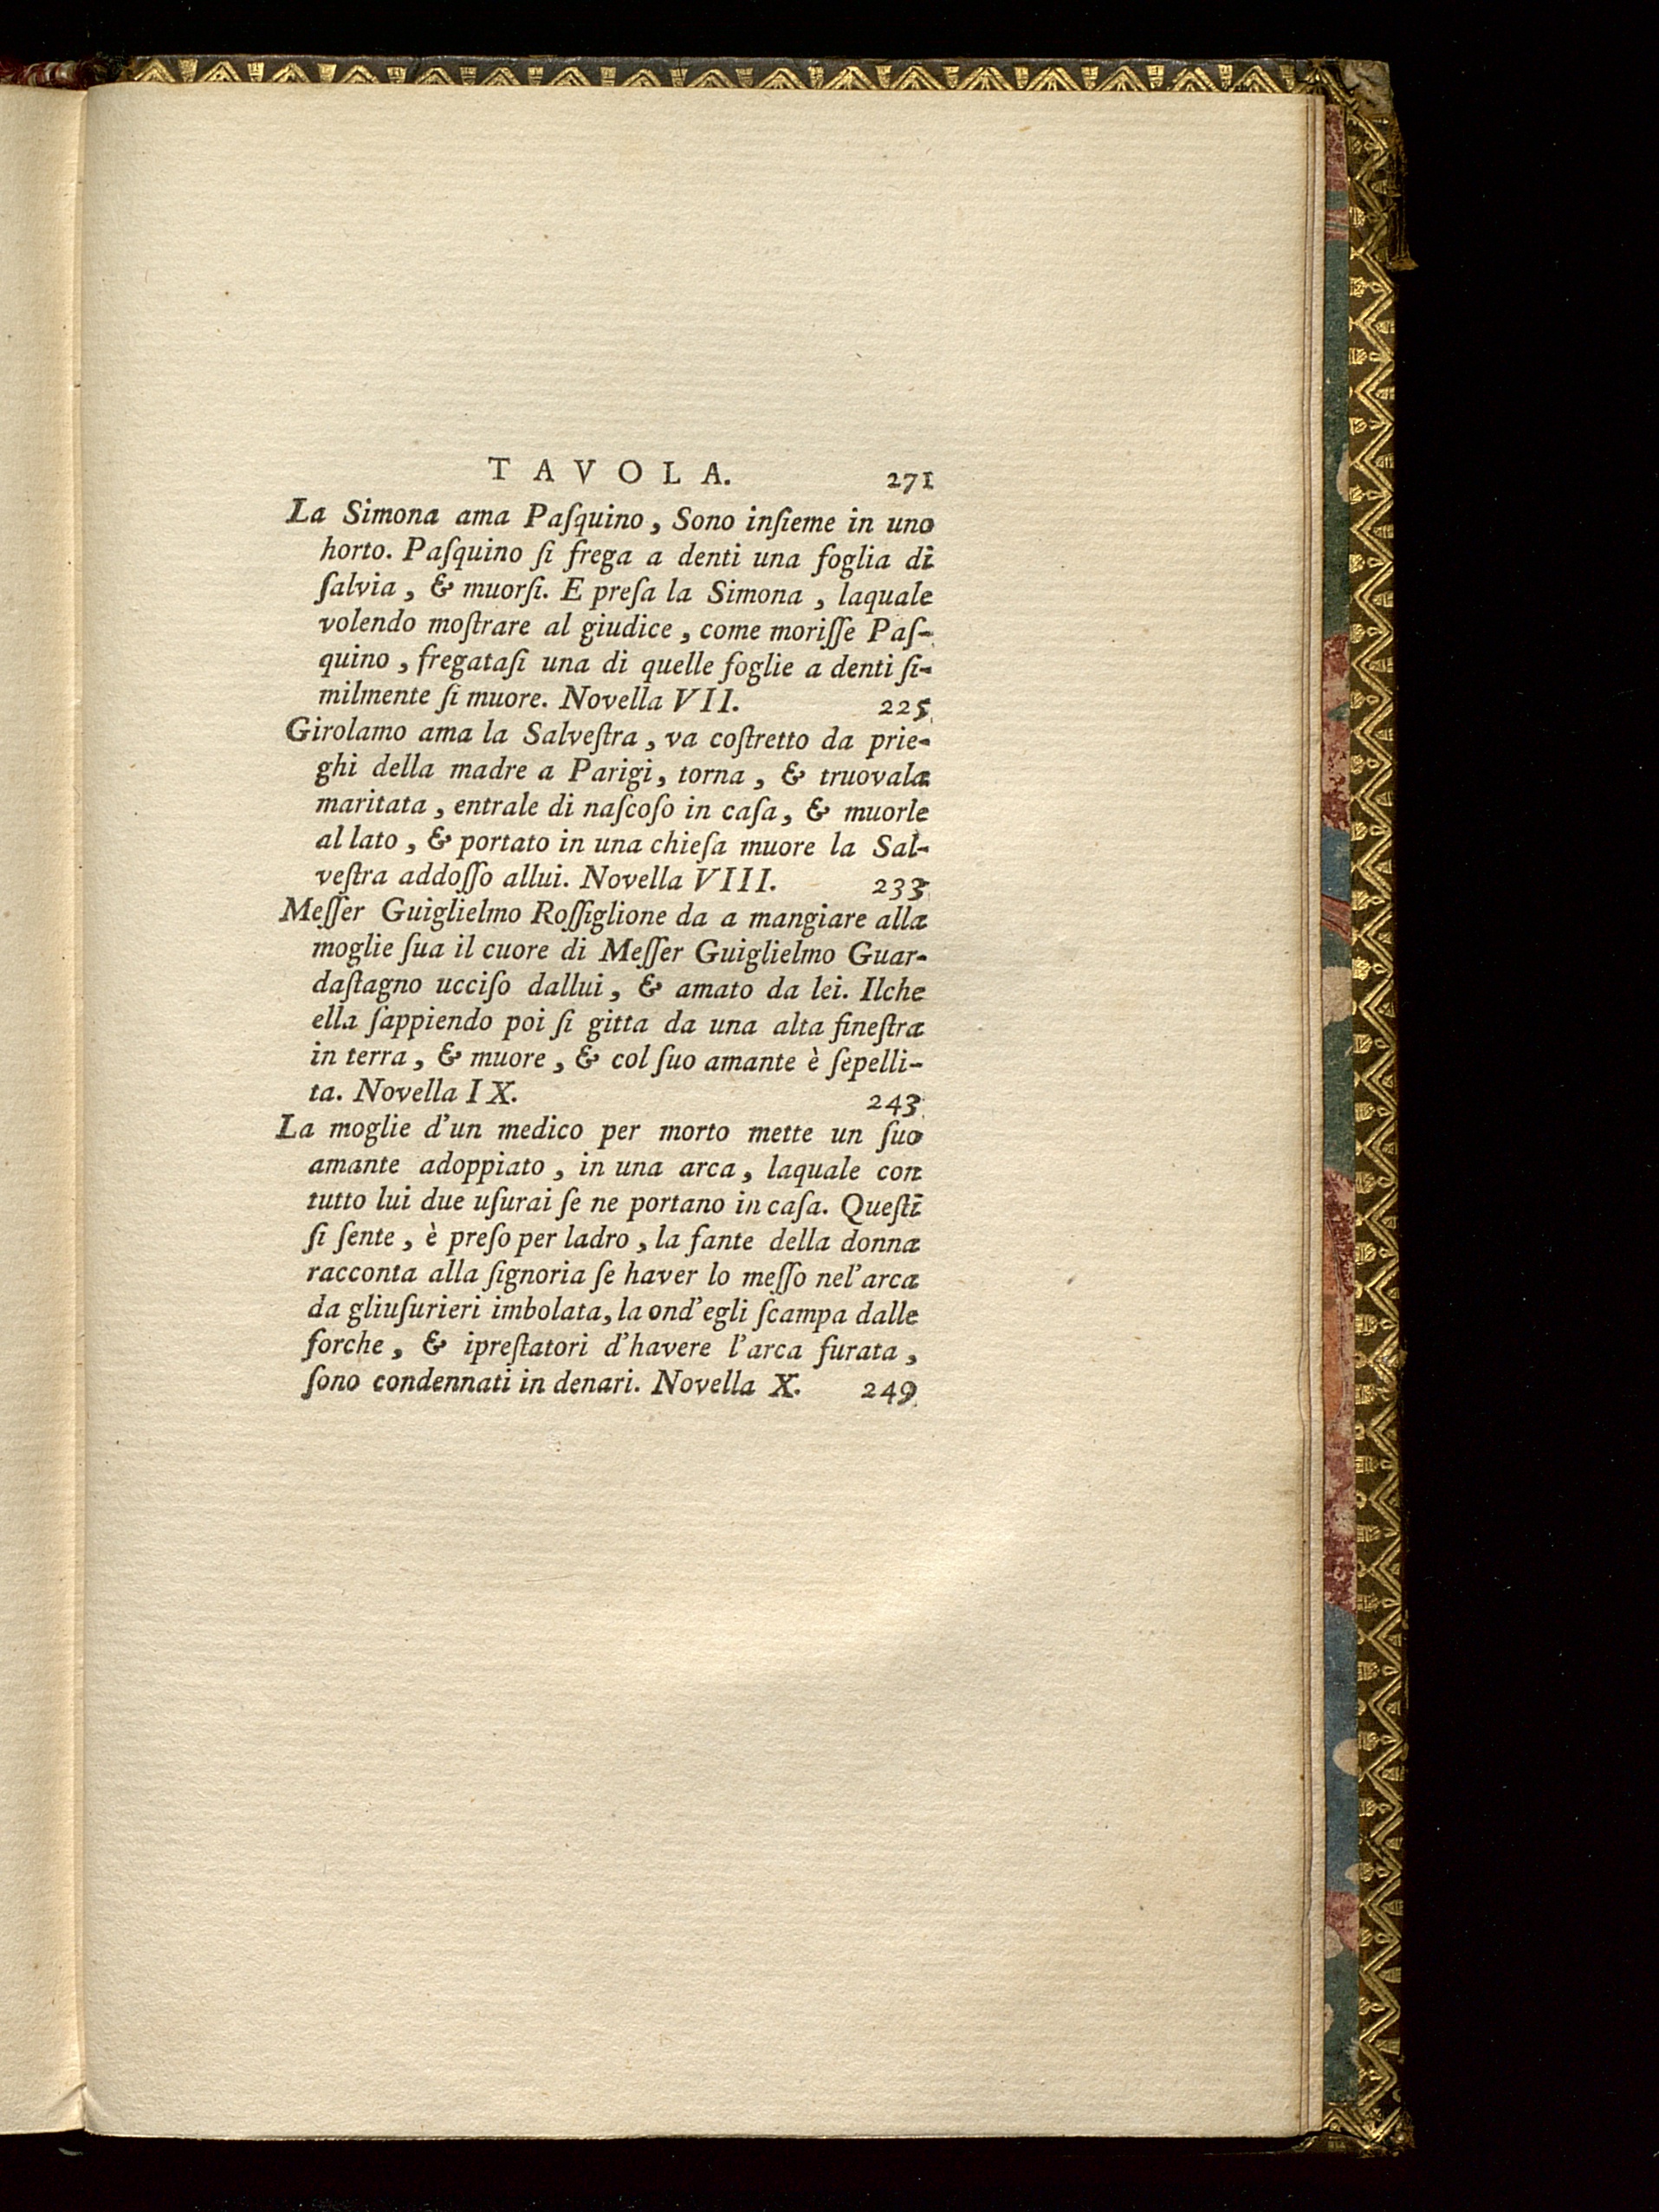 TAVOLA. 271
La Simona ama Paſquino, Sono inſieme in uno
horto. Paſquino ſi frega a denti una foglia di
ſalvia, & muorſi. E preſa la Simona, laquale
volendo moſtrare al giudice, come moriſſe Paſ-
quino, fregataſi una di quelle foglie a denti ſi-
milmente ſi muore. Novella VII. 225
Girolamo ama la Salveſtra, va coſtretto da prie-
ghi della madre a Parigi, torna, & truovala
maritata, entrale di naſcoſo in caſa, & muorle
al lato, & portato in una chieſa muore la Sal-
veſtra addoſſo allui. Novella VIII. 233
Meſſer Guiglielmo Roſſiglione da a mangiare alla
moglie ſua il cuore di Meſſer Guiglielmo Guar-
daſtagno ucciſo dallui, & amato da lei. Ilche
ella ſappiendo poi ſi gitta da una alta fineſtra
in terra, & muore, & col ſuo amante è ſepelli-
ta. Novella IX. 243
La moglie d'un medico per morto mette un ſuo
amante adoppiato, in una arca, laquale con
tutto lui due uſurai ſe ne portano in caſa. Queſti
ſi ſente, è preſo per ladro, la fante della donna
racconta alla ſignoria ſe haver lo meſſo nel'arca
da gliuſurieri imbolata, la ond'egli ſcampa dalle
forche, & ipreſtatori d'havere l'arca furata,
ſono condennati in denari. Novella X. 249